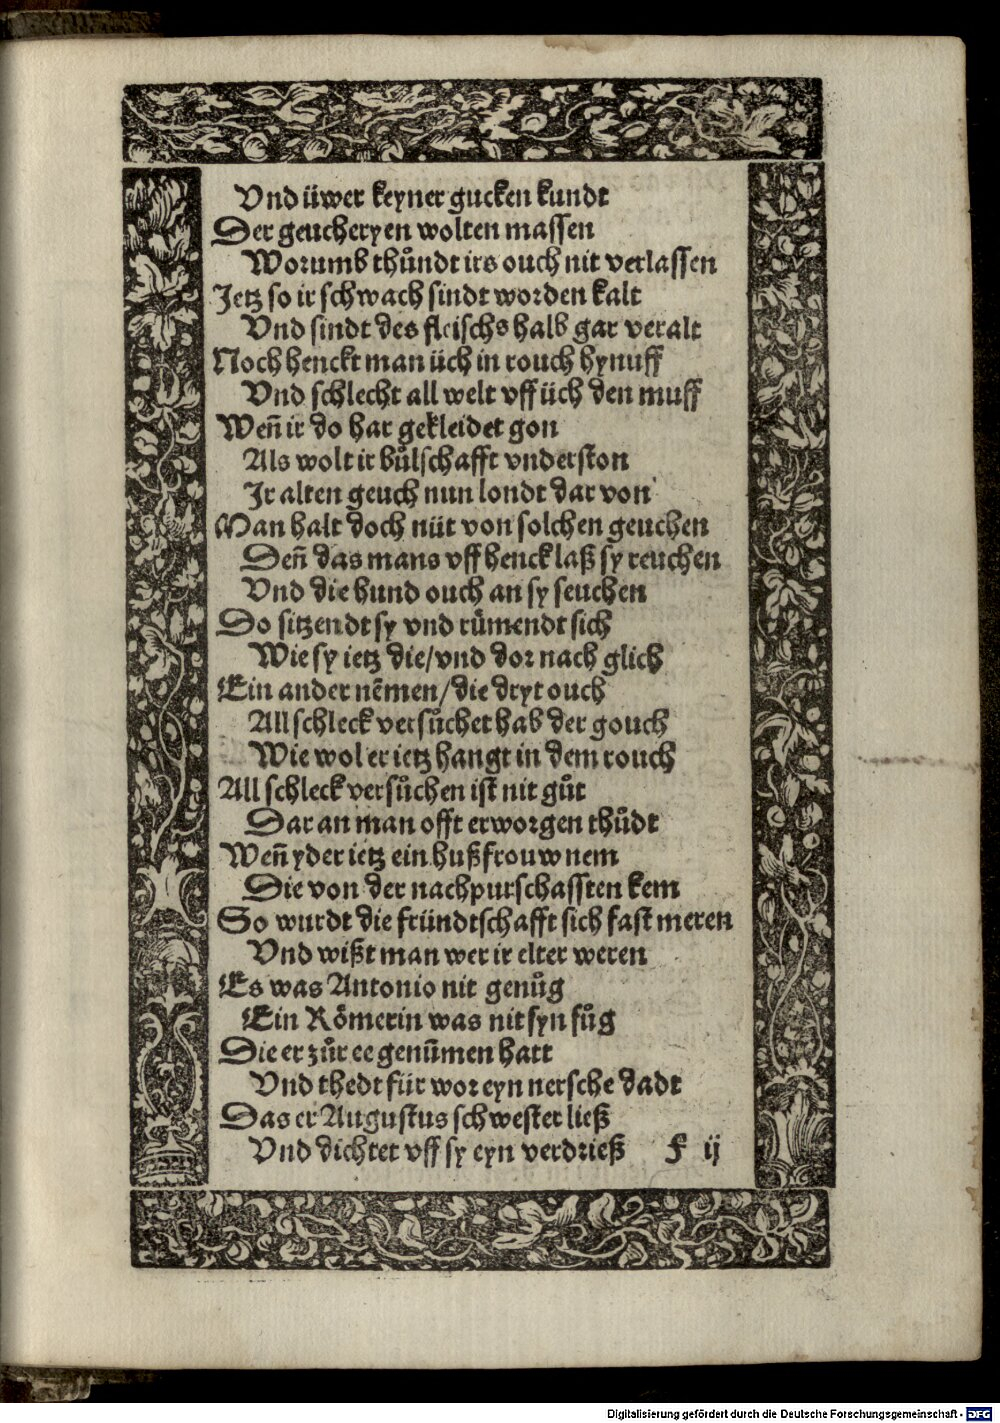 Vnd üwer keyner gucken kundt
Der geucheryen wolten massen
Worumb thůndt irs ouch nit verlassen
Jetz so ir schwach sindt worden kalt
Vnd sindt des fleischs halb gar veralt
Noch henckt man üch in rouch hynuff
Vnd schlecht all welt vff üch den muff
Weñ ir do har gekleidet gon
Als wolt ir bůlschafft vnderston
Jr alten geuch nun londt dar von
Man halt doch nüt von solchen geuchen
Deñ das mans vff henck laß sy reuchen
Vnd die hund ouch an sy seuchen
Do sitzendt sy vnd růmendt sich
Wie sy ietz die/vnd dor nach glich
Ein ander nẽmen/die dryt ouch
All schleck versůchet hab der gouch
Wie wol er ietz hangt in dem rouch
All schleck versůchen ist nit gůt
Dar an man offt erworgen thůdt
Weñ yder ietz ein hußfrouw nem
Die von der nachpurschafften kem
So wurdt die fründtschafft sich fast meren
Vnd wißt man wer ir elter weren
Es was Antonio nit genůg
Ein Rőmerin was nit syn fůg
Die er zůr ee genũmen hatt
Vnd thedt für wor eyn nersche dadt
Das er Augustus schwester ließ
Vnd dichtet vff sy eyn verdrieß F ij
Digitalisierung gefördert durch die Deutsche Forschungsgemeinschaft - DFG